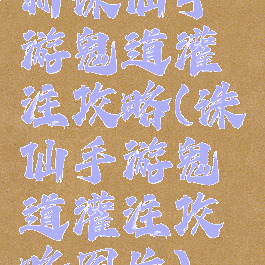 新诛仙手
游鬼道灌
注攻略(诛
仙手游鬼
道灌注攻
略图片)